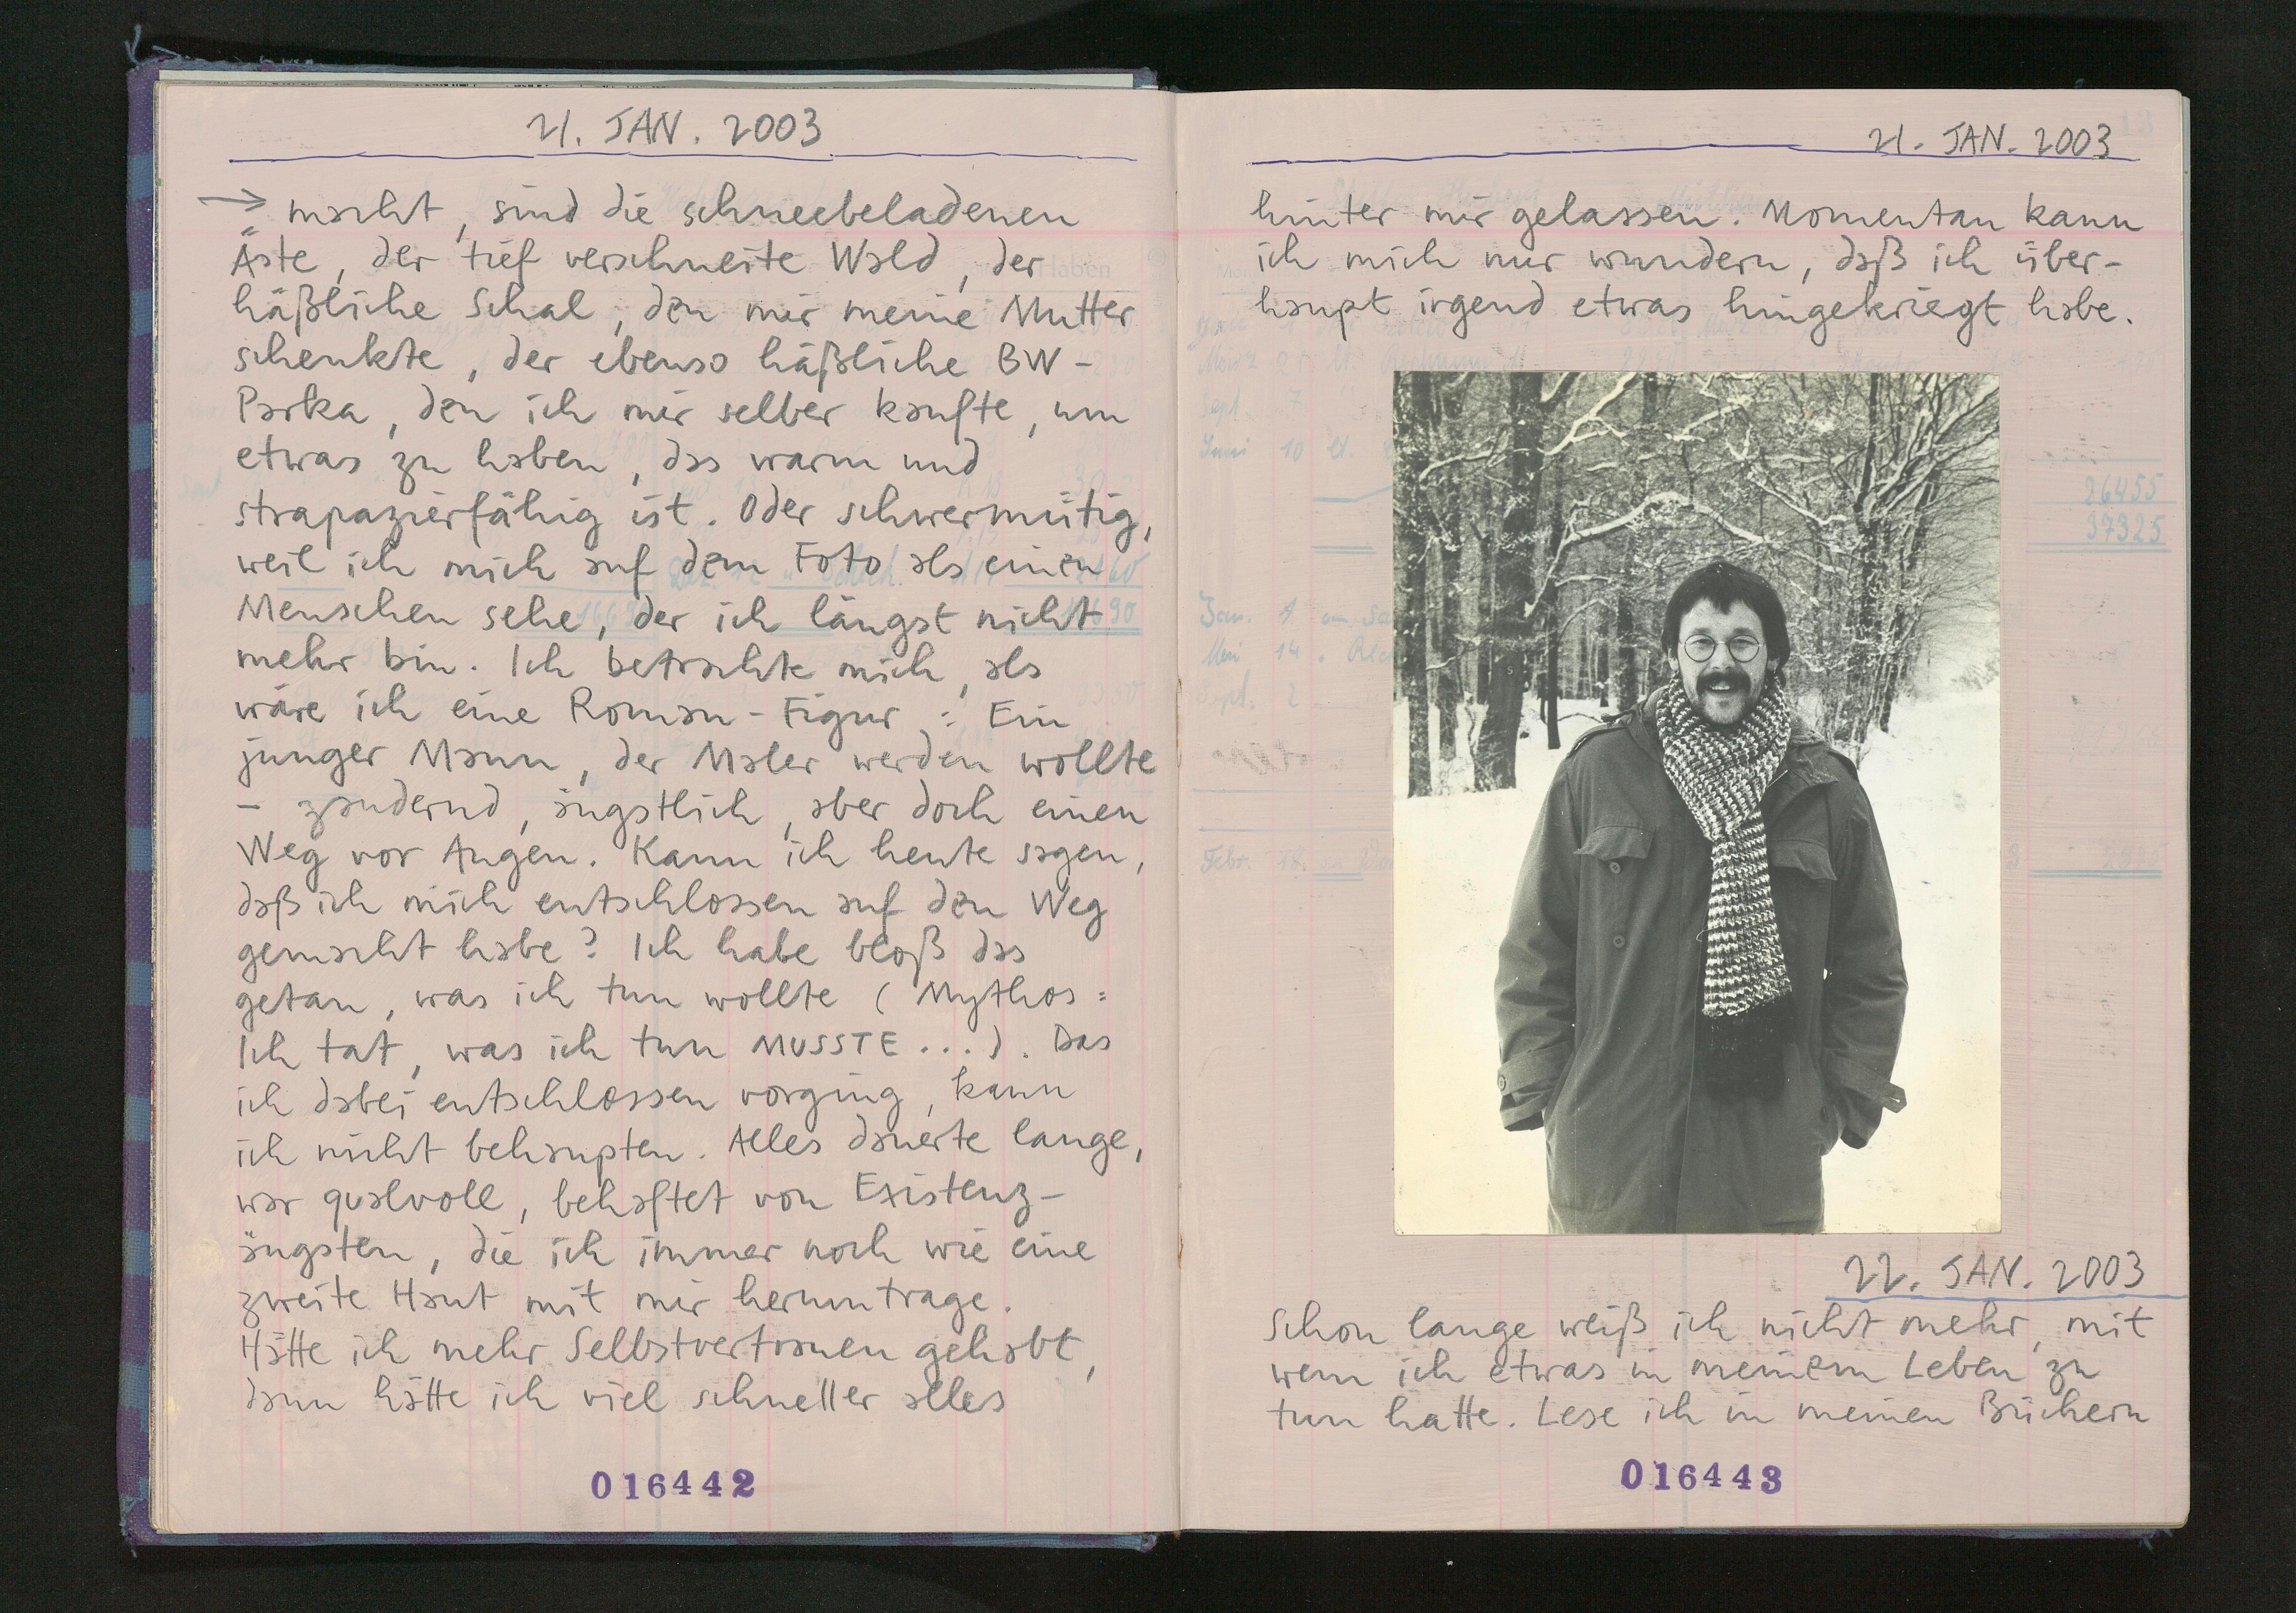 21. JAN. 2003
→ macht, sind die schneebeladenen
Äste, der tief verschneite Wald, der
häßliche Schal, den mir meine Mutter
schenkte, der ebenso häßliche BW-
Parka, den ich mir selber kaufte, um
etwas zu haben, das warm und
strapazierfähig ist. Oder schwermütig,
weil ich mich auf dem Foto als einen
Menschen sehe, der ich längst nicht
mehr bin. Ich betrachte mich, als
wäre ich eine Roman-Figur: Ein
junger Mann, der Maler werden wollte
– zaudernd, ängstlich, aber doch einen
Weg vor Augen. Kann ich heute sagen,
daß ich mich entschlossen auf den Weg
gemacht habe? Ich habe bloß das
getan, was ich tun wollte (Mythos:
Ich tat, was ich tun MUSSTE...). Das
ich dabei entschlossen vorging, kann
ich nicht behaupten. Alles dauerte lange,
war qualvoll, behaftet von Existenz-
ängsten, die ich immer noch wie eine
zweite Haut mit mir herumtrage.
Hätte ich mehr Selbstvertrauen gehabt,
dann hätte ich viel schneller alles
016442
21. JAN. 2003
hinter mir gelassen. Momentan kann
ich mich nur wundern, daß ich über-
haupt irgend etwas hingekriegt habe.
26455
37325
22. JAN. 2003
Schon lange weiß ich nicht mehr, mit
wem ich etwas in meinem Leben zu
tun hatte. Lese ich in meinen Büchern
016443